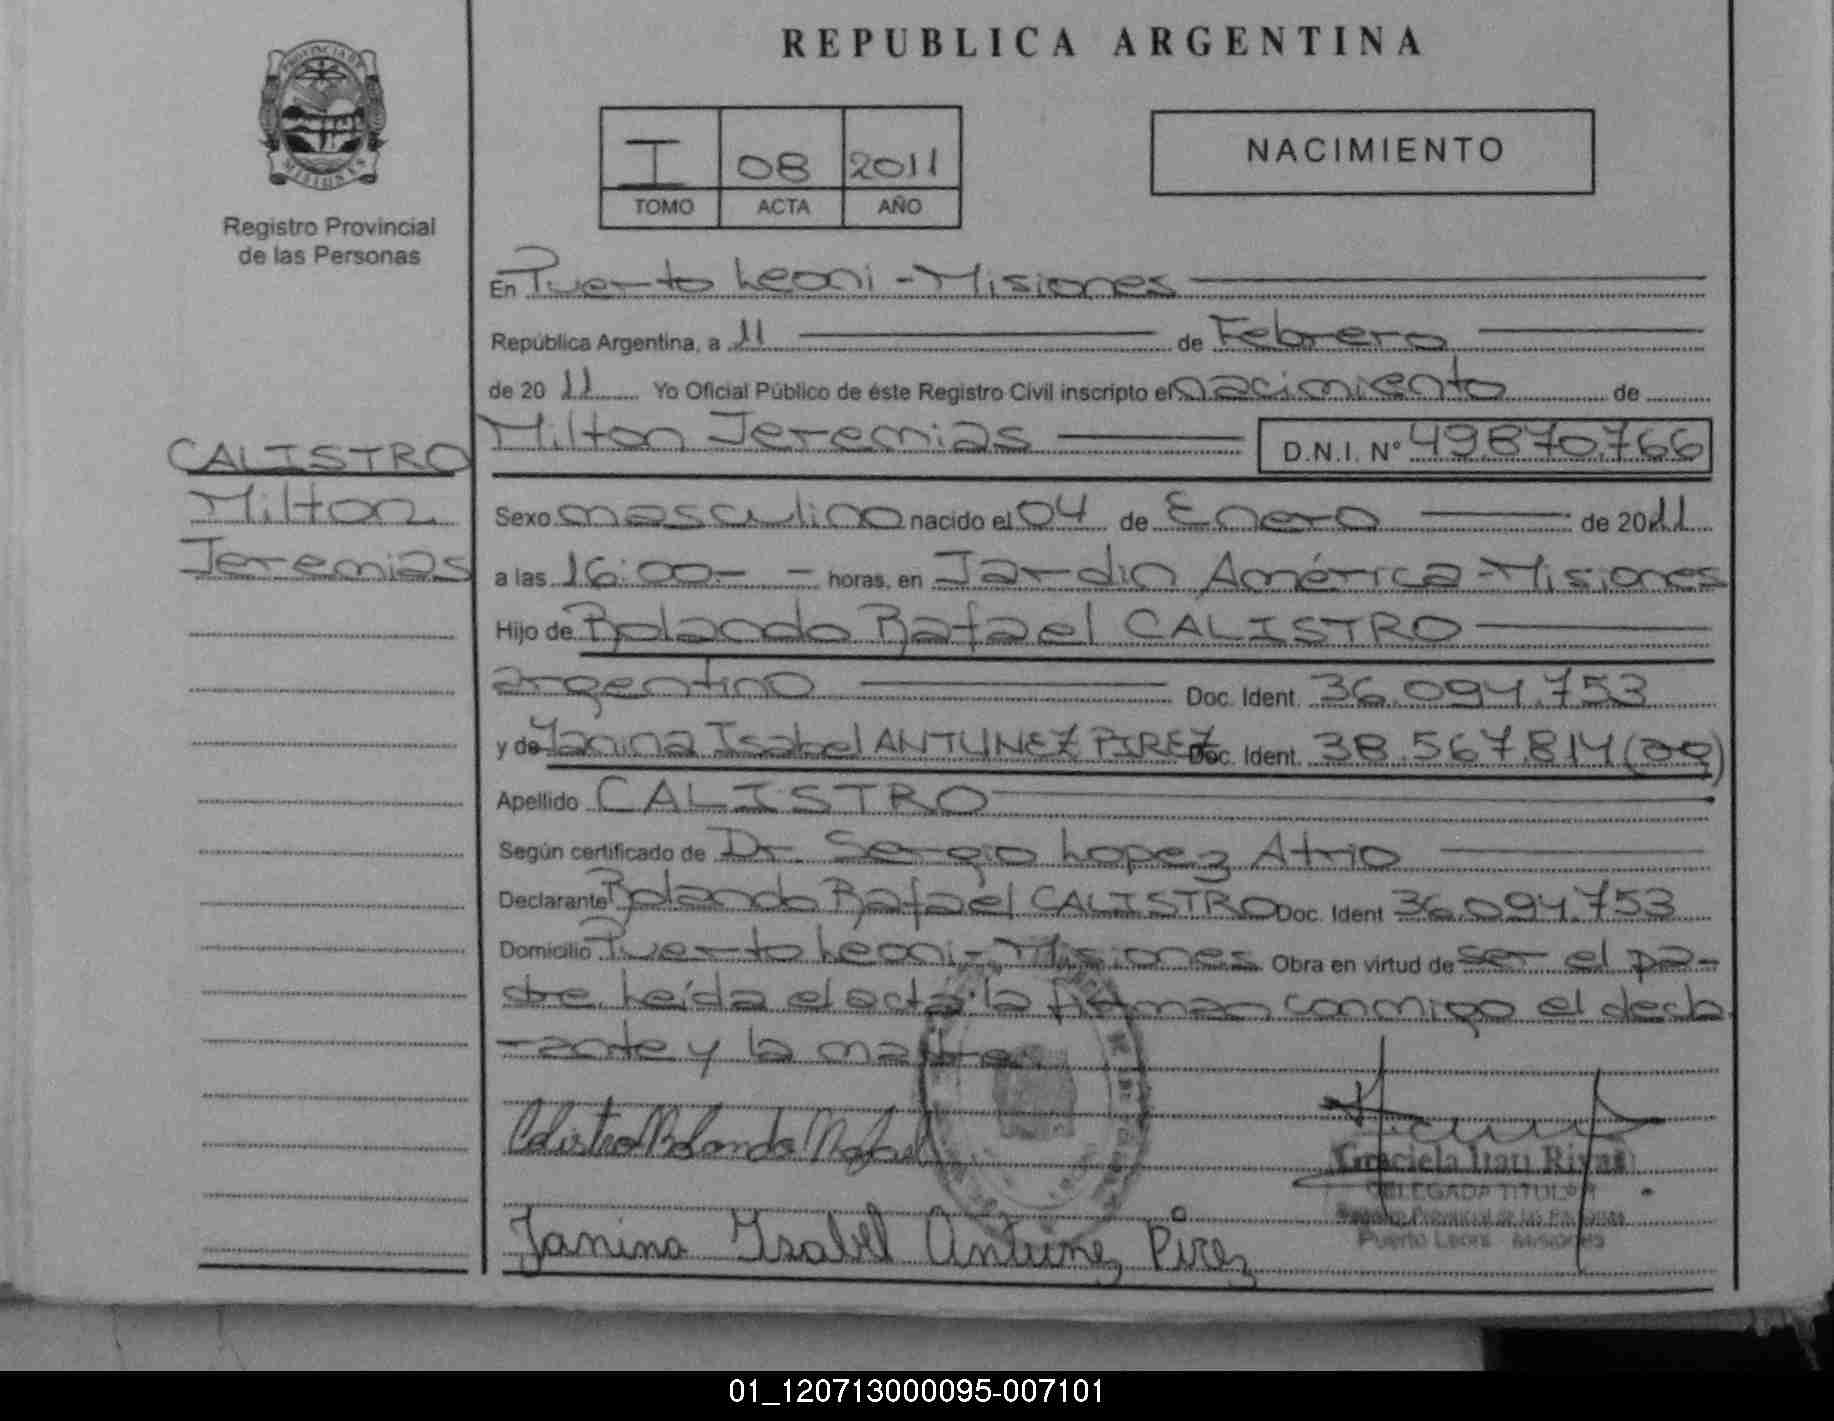 REPUBLICA ARGENTINA
PROVINCIA DE
MISIONES
Registro Provincial
de las Personas
I 08 2011
TOMO ACTA AÑO
NACIMIENTO
En Puerto Leoni - Misiones
República Argentina, a 11 de Febrero
de 20 11 Yo Oficial Público de éste Registro Civil inscripto el nacimiento de
Milton Jeremias D.N.I. N° 49.870.766
CALISTRO
Milton
Jeremias
Sexo masculino nacido el 04 de Enero de 2011
a las 16:00.- - horas, en Jardin América - Misiones
Hijo de Rolando Rafael CALISTRO
argentino Doc. Ident. 36.094.753
y de Yanina Isabel ANTUNEZ PIREZ Doc. Ident. 38.567.814 (arg)
Apellido CALISTRO
Según certificado de Dr. Sergio Lopez Atrio
Declarante Rolando Rafael CALISTRO Doc. Ident 36.094.753
Domicilio Puerto Leoni - Misiones Obra en virtud de ser el pa-
dre. Leída el acta la firman conmigo el decla
rante y la madre.
Calistro Rolando Rafael
Graciela Itati Rivas
DELEGADA TITULAR
Registro Provincial de las Personas
Puerto Leoni - Misiones
Janina Ysabel Antunez Pirez
01_120713000095-007101